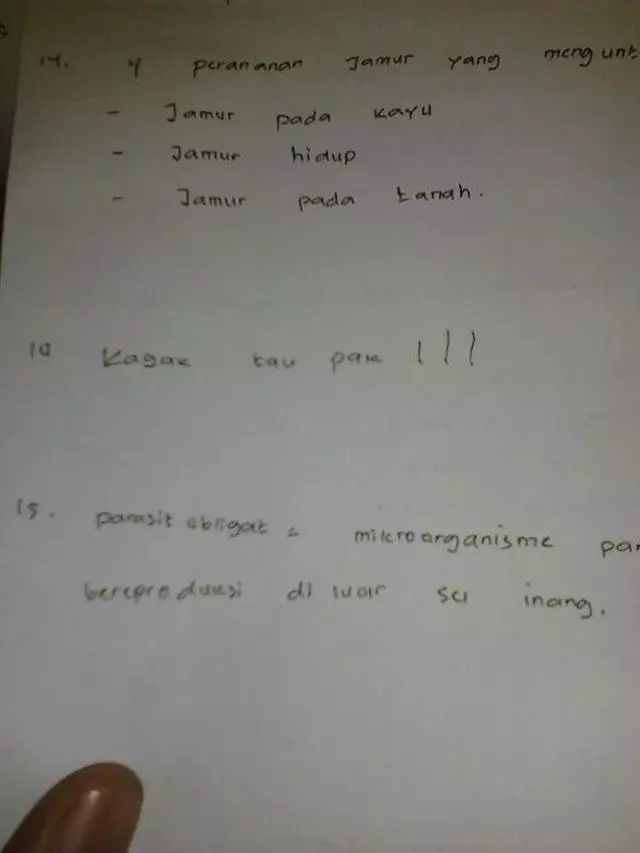 14. 4 perananan Jamur yang mengunt
- Jamur pada kayu
- Jamur hidup
- Jamur pada tanah.
10 Kagak tau pak !!!
15. parasit obligat = mikroarganisme par
bereproduksi di luar sel inang.